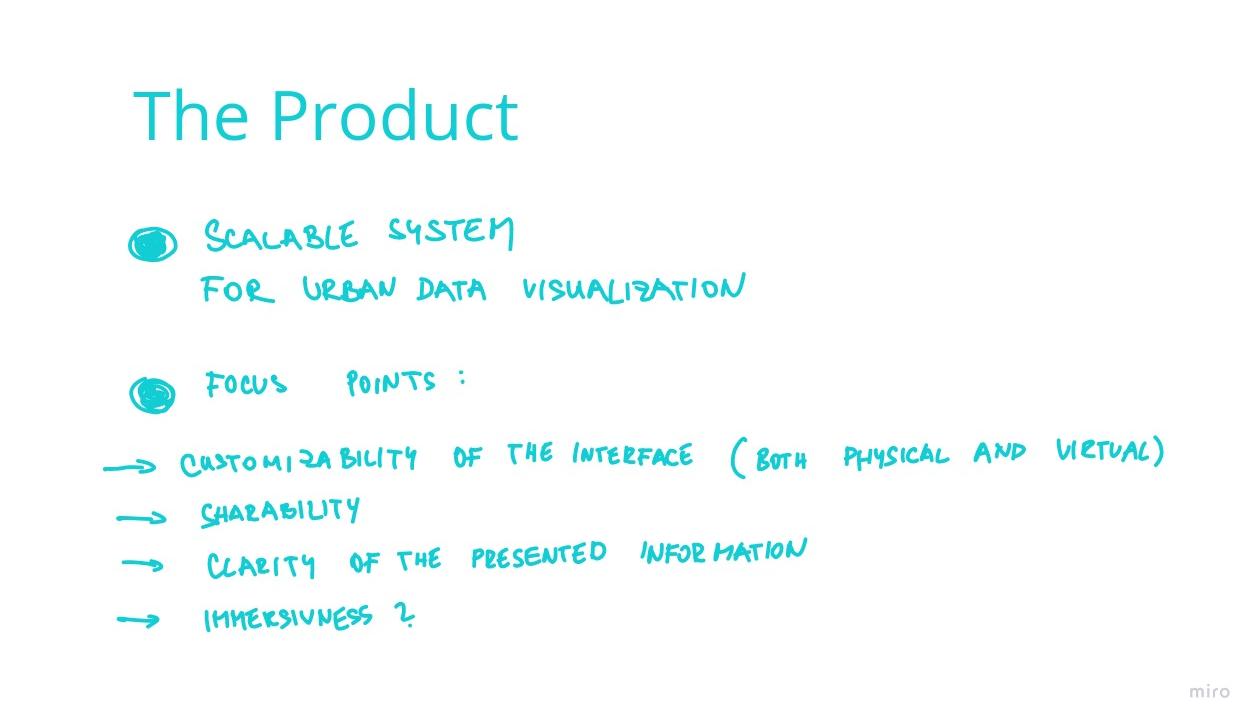 The Product
SCALABLE SYSTEM
FOR URBAN DATA VISUALIZATION
FOCUS POINTS :
→ CUSTOMIZABILITY OF THE INTERFACE (BOTH PHYSICAL AND VIRTUAL)
→ SHARABILITY
→ CLARITY OF THE PRESENTED INFORMATION
→ IMMERSIVNESS ?
miro